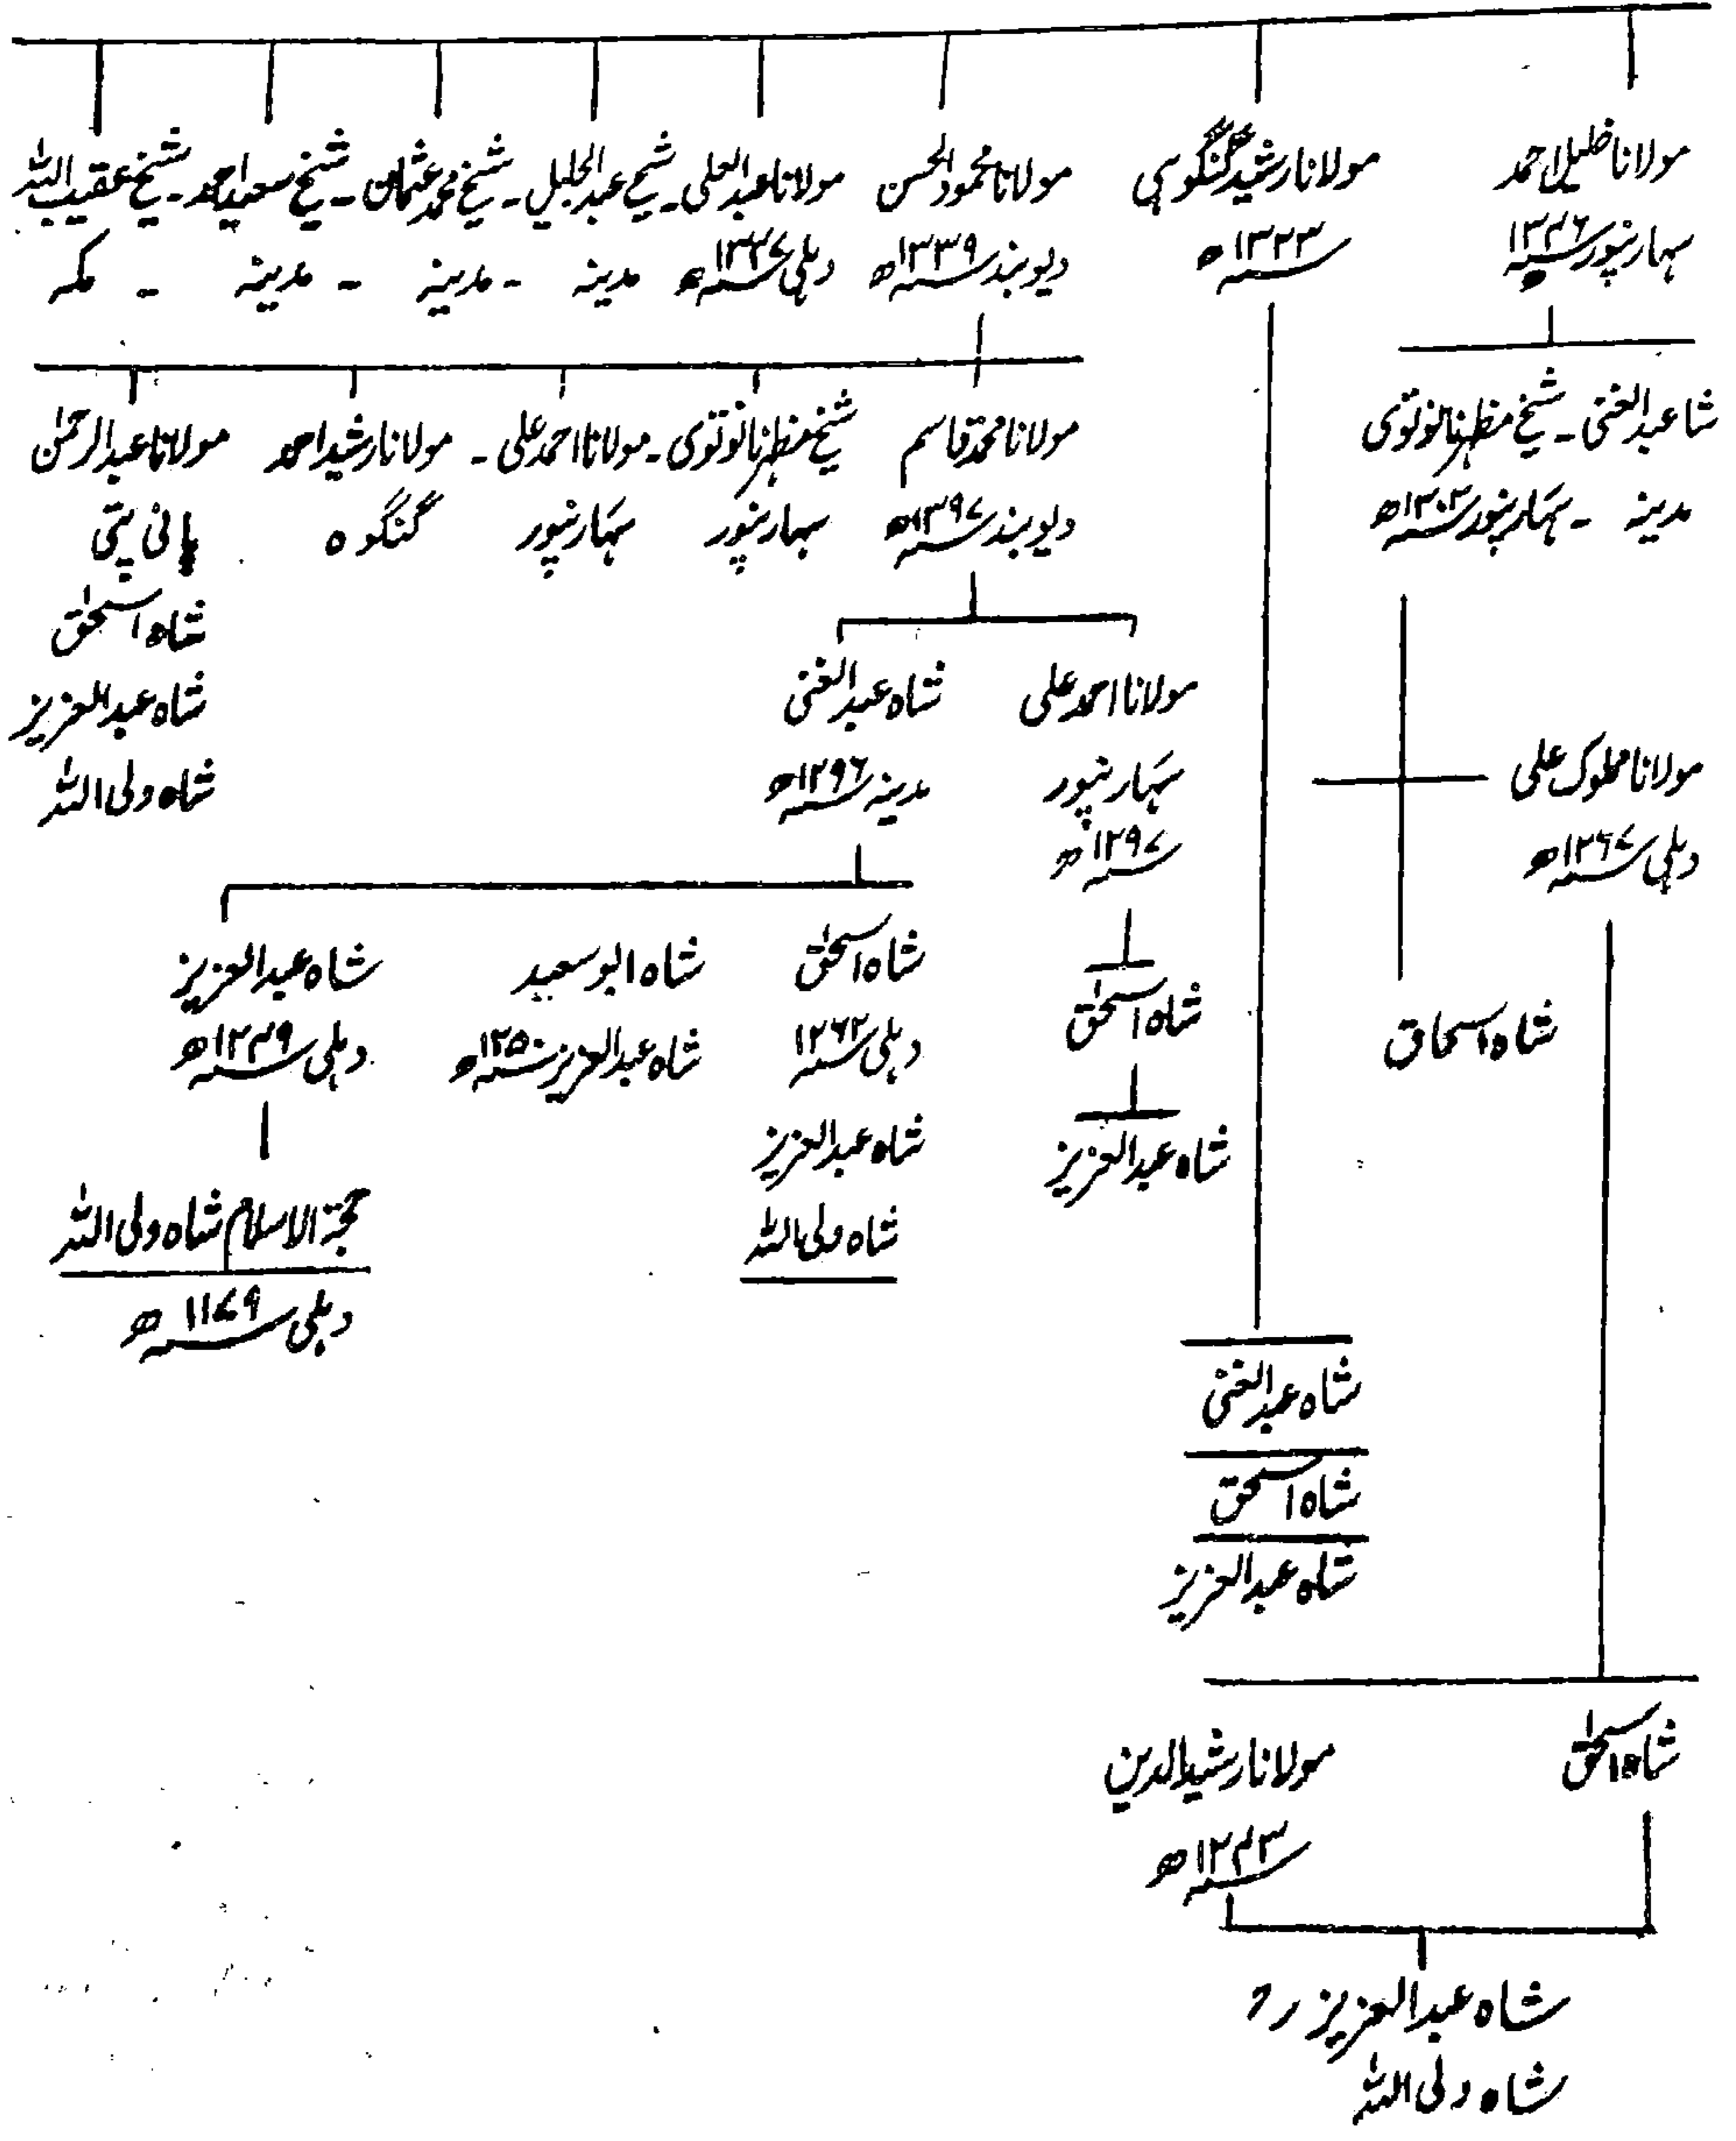 مولانا خلیل احمد
سہارنپور ۱۳۴۶ھ
مولانا رشید گنگوہی
۱۳۲۳ھ
مولانا محمود الحسن
دیوبند ۱۳۳۹ھ
مولانا عبدالعلی ـ شیخ عبدالجلیل ـ شیخ محمد عثمان ـ شیخ سعید احمد ـ شیخ عقیب اللہ
دہلی ۱۳۴۷ھ مدینہ ـ مدینہ ـ مدینہ ـ مکہ
شاعبدالغنی ـ شیخ مظہر نانوتوی
مدینہ ـ سہارنپور ۱۳۰۲ھ
مولانا محمد قاسم
دیوبند ۱۳۹۷ھ
شیخ مظہر نانوتوی ـ مولانا احمد علی ـ مولانا رشید احمد
سہارنپور سہارنپور گنگوہ
مولانا عبدالرحمٰن
پانی پتی
شاہ اسحٰق
شاہ عبدالعزیز
شاہ ولی اللہ
مولانا مملوک علی
دہلی ۱۲۶۷ھ
مولانا احمد علی
سہارنپور
۱۲۹۷ھ
شاہ عبدالغنی
مدینہ ۱۲۹۶ھ
شاہ اسحاق
شاہ اسحٰق
شاہ عبدالعزیز
شاہ اسحٰق
دہلی ۱۲۶۲
شاہ عبدالعزیز
شاہ ولی اللہ
شاہ ابو سعید
شاہ عبدالعزیز ۱۲۵۰ھ
شاہ عبدالعزیز
دہلی ۱۲۳۹ھ
حجۃ الاسلام شاہ ولی اللہ
دہلی ۱۱۷۹ھ
شاہ عبدالغنی
شاہ اسحٰق
شاہ عبدالعزیز
شاہ اسحٰق
مولانا رشید الدین
۱۲۴۳ھ
شاہ عبدالعزیز رح
شاہ ولی اللہ